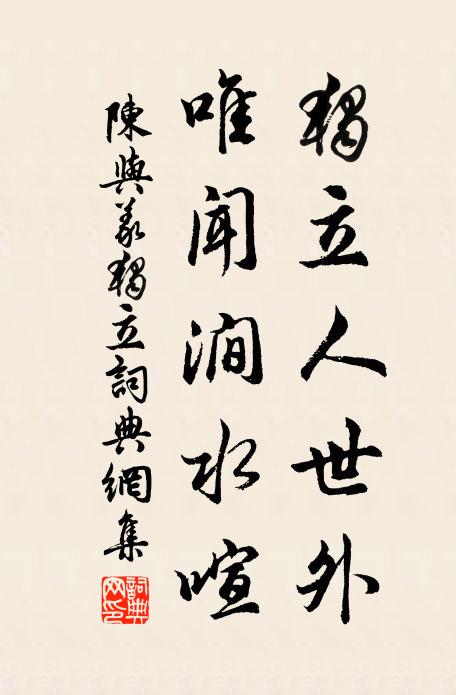 獨立人世外
唯聞澗水喧
陳與義獨立詞典網集
詞典網印